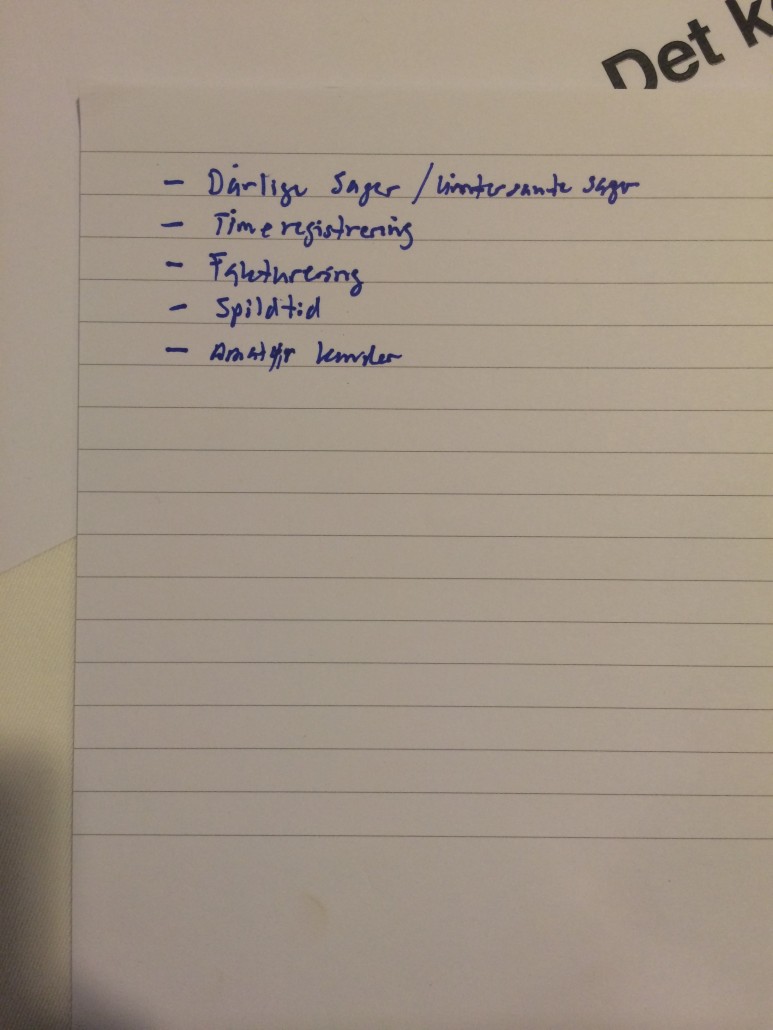 Det k
- Dårlige Sager / Uinteresante sager
- Timeregistrering
- Fakturering
- Spildtid
- Amatør kunder